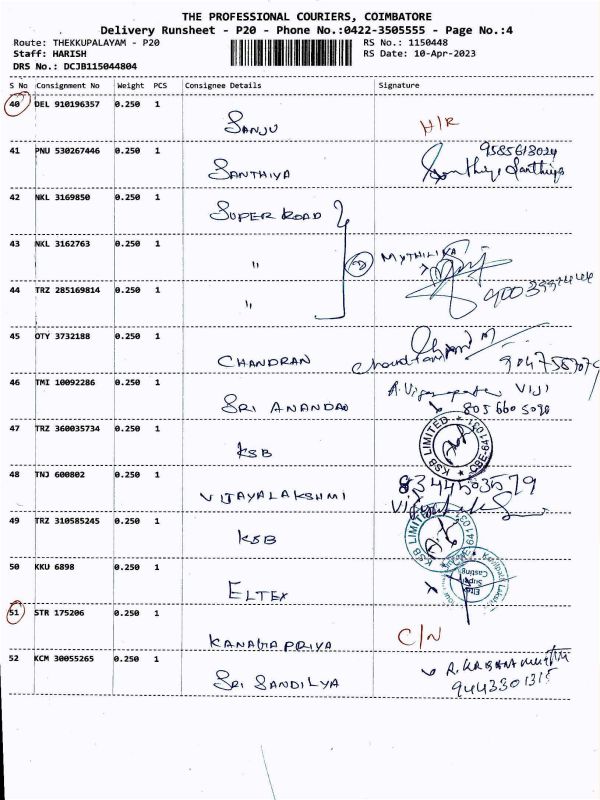 THE PROFESSIONAL COURIERS, COIMBATORE
Delivery Runsheet - P20 - Phone No.:0422-3505555 - Page No.:4
Route: THEKKUPALAYAM - P20 RS No.: 1150448
Staff: HARISH RS Date: 10-Apr-2023
DRS No.: DCJB115044804
S No Consignment No Weight PCS Consignee Details Signature
40 DEL 910196357 0.250 1
SANJU H/R
41 PNU 530267446 0.250 1 9585613024
SANTHIYA Santhiya
42 NKL 3169850 0.250 1
SUPER ROAD
43 NKL 3162763 0.250 1
" MYTHILIKA
44 TRZ 285169814 0.250 1
"
45 OTY 3732188 0.250 1
CHANDRAN
46 TMI 10092286 0.250 1 VIJI
SRI ANANDAA 8056605090
47 TRZ 360035734 0.250 1 KSB LIMITED
KSB CBE-641031
48 TNJ 600802 0.250 1 8344503579
VIJAYALAKSHMI
49 TRZ 310585245 0.250 1 KSB LIMITED
KSB 641031
50 KKU 6898 0.250 1
ELTEX
51 STR 175206 0.250 1
KANAGAPRIYA C/N
52 KCM 30055265 0.250 1
SRI SANDILYA